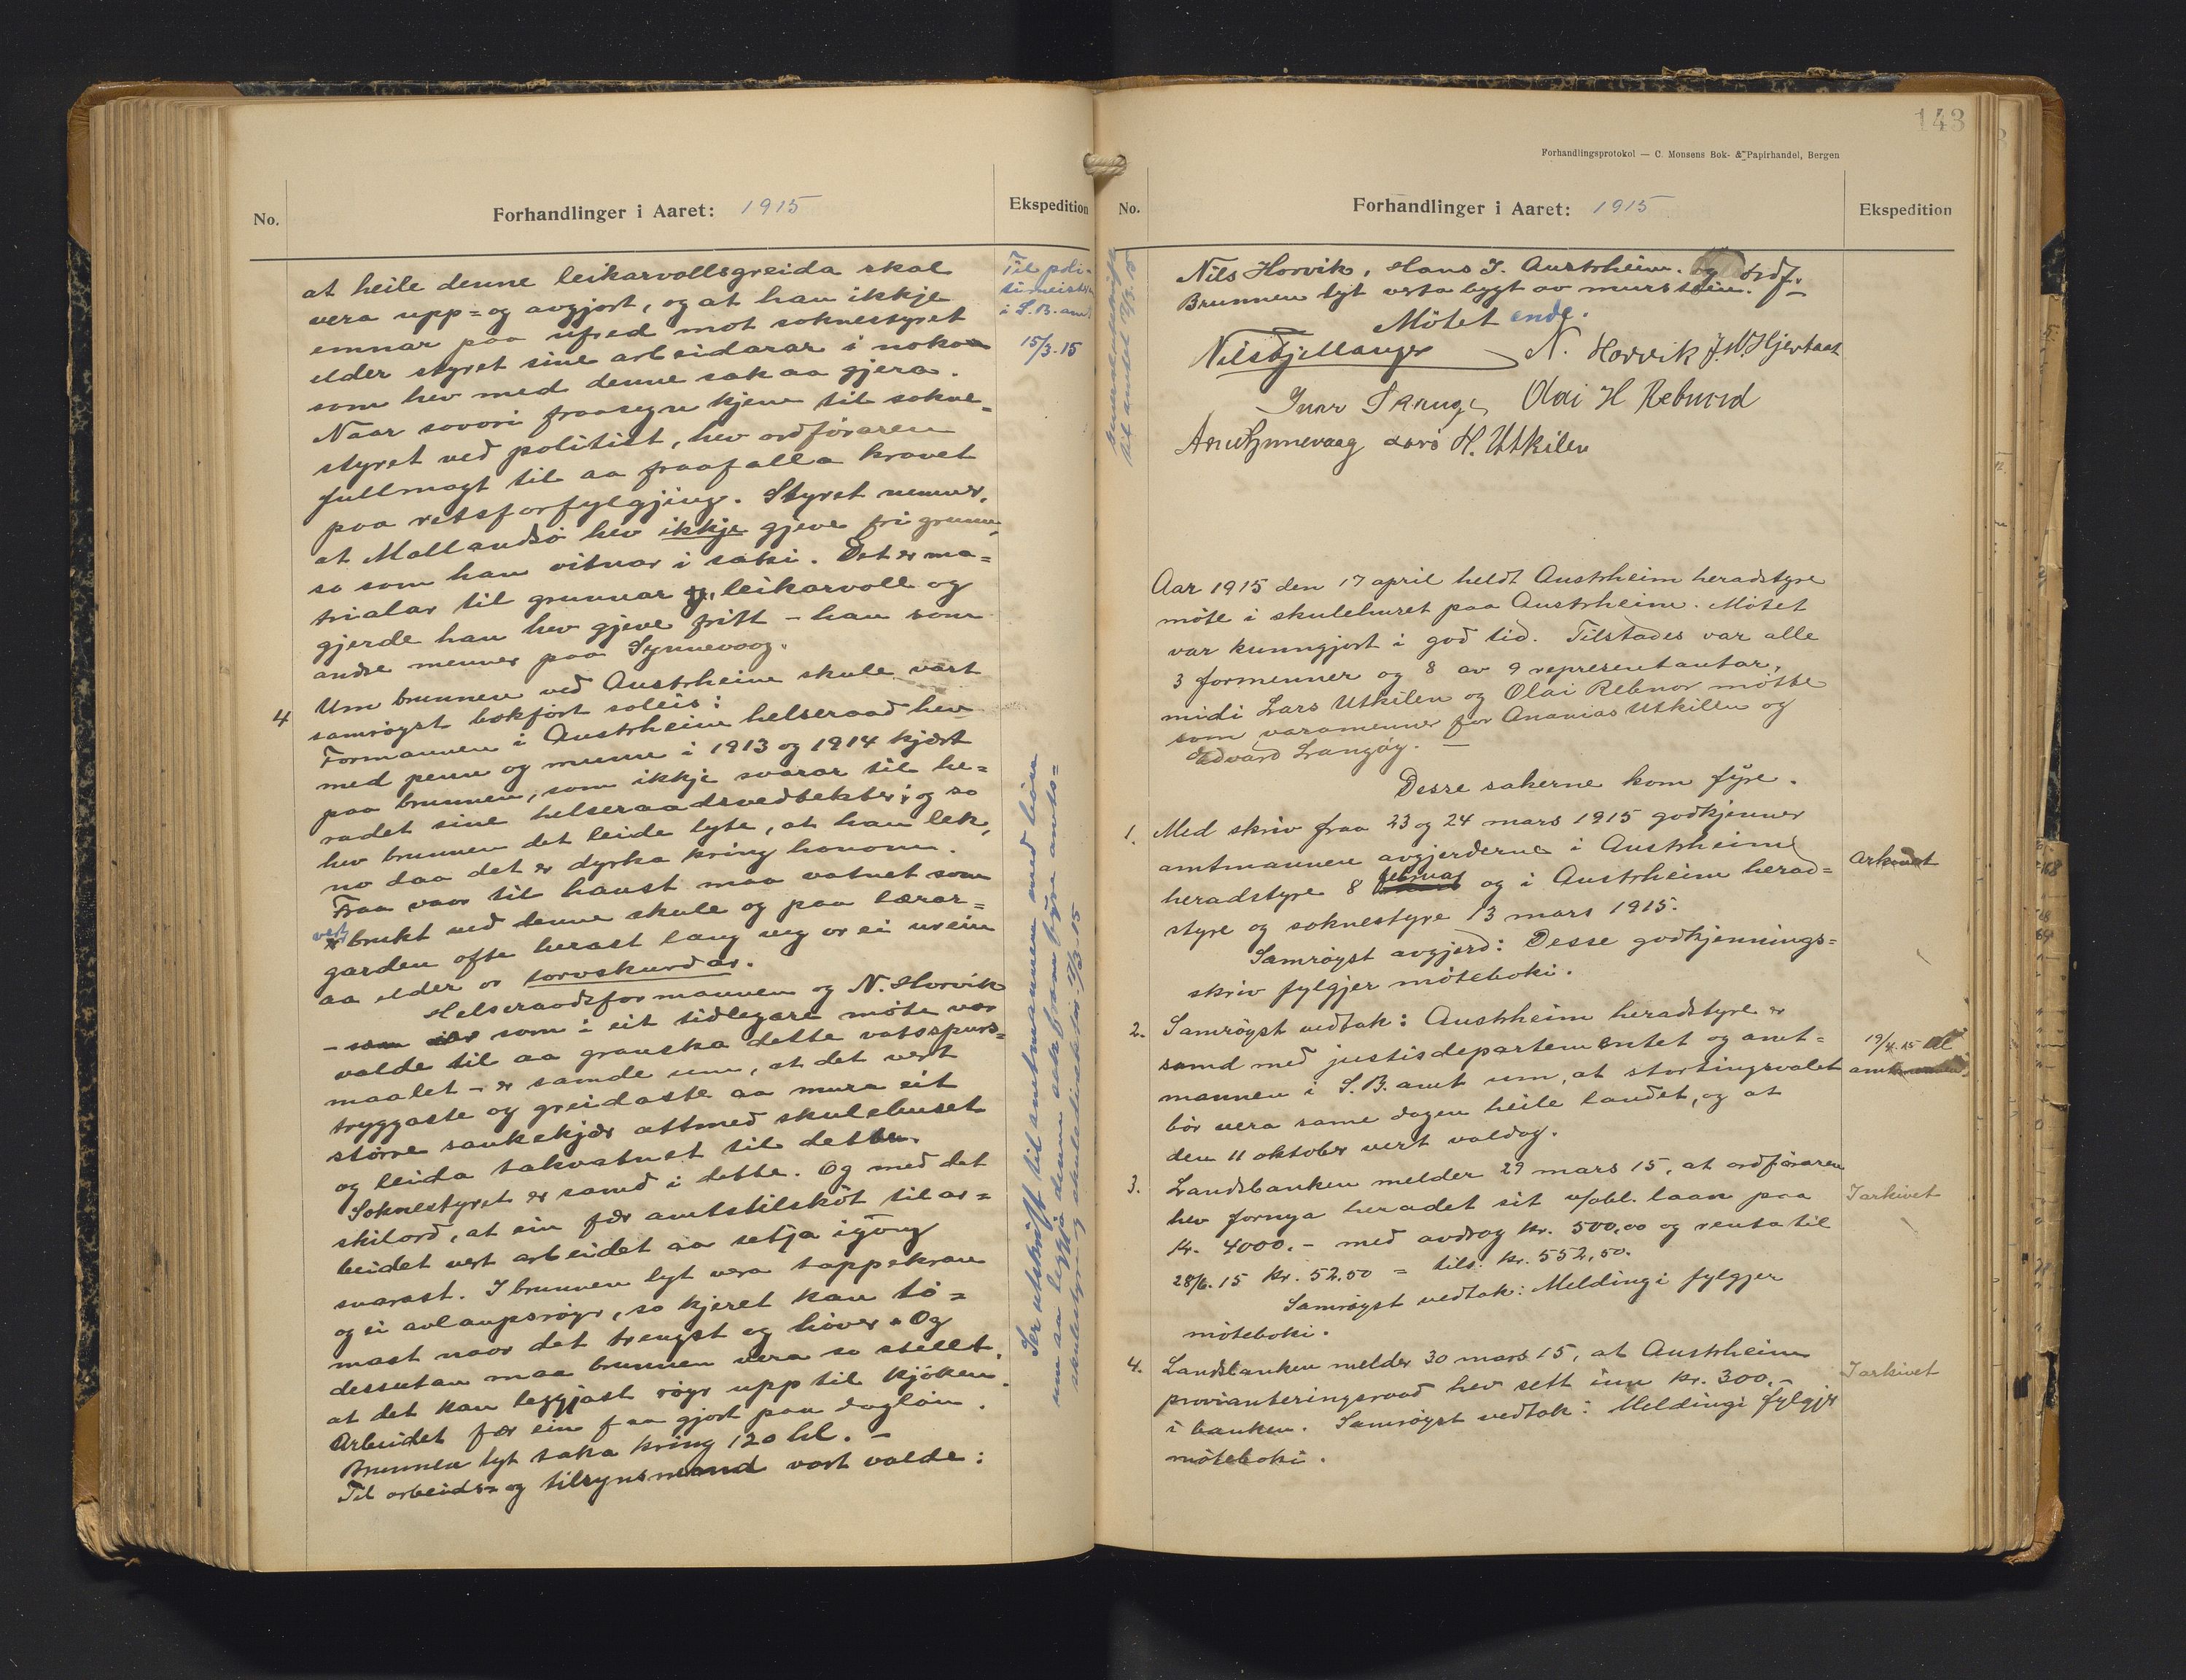 No.
Forhandlinger i Aaret: 1915
Ekspedition
at heile denne leikarvollsgreida skal
vera upp= og avgjort, og at han ikkje
emnar paa ufred mot soknestyret
elder styret sine arbeidarar i noko
som hev med denne sak aa gjera.
Naar sovori fraasegn kjem til sokne-
styret ved politiet, hev ordföraren
fullmagt til aa fraafalla kravet
paa retsforfylgjing. Styret nemner,
at Mallandsö hev ikkje gjeve fri grunn,
so som han vitnar i saki. Det er ma=
trialar til grunnar leikarvoll og
gjerde han hev gjeve fritt - han som
andre menner paa Synnevaag.
4 Um brunnen ved Austrheim skule vart
samröyst bokfört soleis:
Formannen i Austrheim helseraad hev
med penn og munn i 1913 og 1914 kjært
paa brunnen, som ikkje svarar til he=
radet sine helseraadsvedtekter; og so
hev brunnen det leide lyte, at han lek,
no daa det er dyrka kring honom.
Fraa vaar til haust maa vatnet som
vert brukt ved denne skule og paa lærar=
garden ofte herast lang veg or ei urein
aa elder or torvskurdar.
Helseraadsformannen og N. Horvik
- som i eit tidlegare möte var
valde til aa granska dette vatsspurs=
maalet - er samde um, at det vert
tryggaste og greidaste aa mura eit
större sankekjær attmed skulehuset
og leida takvatnet til dette.
Soknestyret er samd i dette. Og med det
skilord, at ein fær amtstilsköt til ar=
beidet vert arbeidet aa setja igong
snarast. I brunnen lyt vera tappekran
og ei avlaupsröyr, so kjeret kan tö=
mast naar det trengst og höver. Og
dessutan maa brunnen vera so stellt,
at det kan leggjast röyr upp til kjöken.
Arbeidet fær ein faa gjort paa daglön.
Brunnen lyt taka kring 120 hl. -
Til arbeids= og tilsynsmend vart valde:
Til poli-
timeistren
i S.B. amt
15/3.15
Ser utskrift til amtmannen med bön
um aa leggja denne sak fram fyre amts=
skulestyre og skuledirektör 17/3.15
143
Forhandlingsprotokol — C. Monsens Bok- & Papirhandel, Bergen
No.
Forhandlinger i Aaret: 1915
Ekspedition
Nils Horvik, Hans J. Austrheim og ordf.
Brunnen lyt verta bygt av murstein.
Mötet ende.
Nils Fjellanger N. Horvik J. W. Hjertaas
Olai H Rebnord
Lars H. Utkilen
Aar 1915 den 17 april heldt Austrheim heradstyre
möte i skulehuset paa Austrheim. Mötet
var kunngjort i god tid. Tilstades var alle
3 formenner og 8 av 9 representantar,
midi Lars Utkilen og Olai Rebnor mötte
som varamenner for Ananias Utkillen og
Edvard Langöy. —
Desse sakerne kom fyre.
1. Med skriv fraa 23 og 24 mars 1915 godkjenner
amtmannen avgjerderne i Austrheim
heradstyre 8 februar og i Austrheim herad=
styre og soknestyre 13 mars 1915.
Samröyst avgjerd: Desse godkjennings=
skriv fylgjer möteboki.
Arkivet
2. Samröyst vedtak: Austrheim heradstyre er
samd med justisdepartementet og amt=
mannen i S.B. amt um, at stortingsvalet
bör vera same dagen heile landet, og at
den 11 oktober vert valdag.
19/4.15 til
amtmannen
3. Landsbanken melder 29 mars 15, at ordföraren
hev fornya heradet sit v/obl. laan paa
kr. 4000.- med avdrag kr. 500,00 og renta til
28/6.15 kr. 52,50 = tils. kr. 552,50.
Samröyst vedtak: Meldingi fylgjer
möteboki.
I arkivet
4. Landsbanken melder 30 mars 15, at Austrheim
provianteringsraad hev sett inn kr. 300.-
i banken. Samröyst vedtak: Meldingi fylgjer
möteboki.
I arkivet